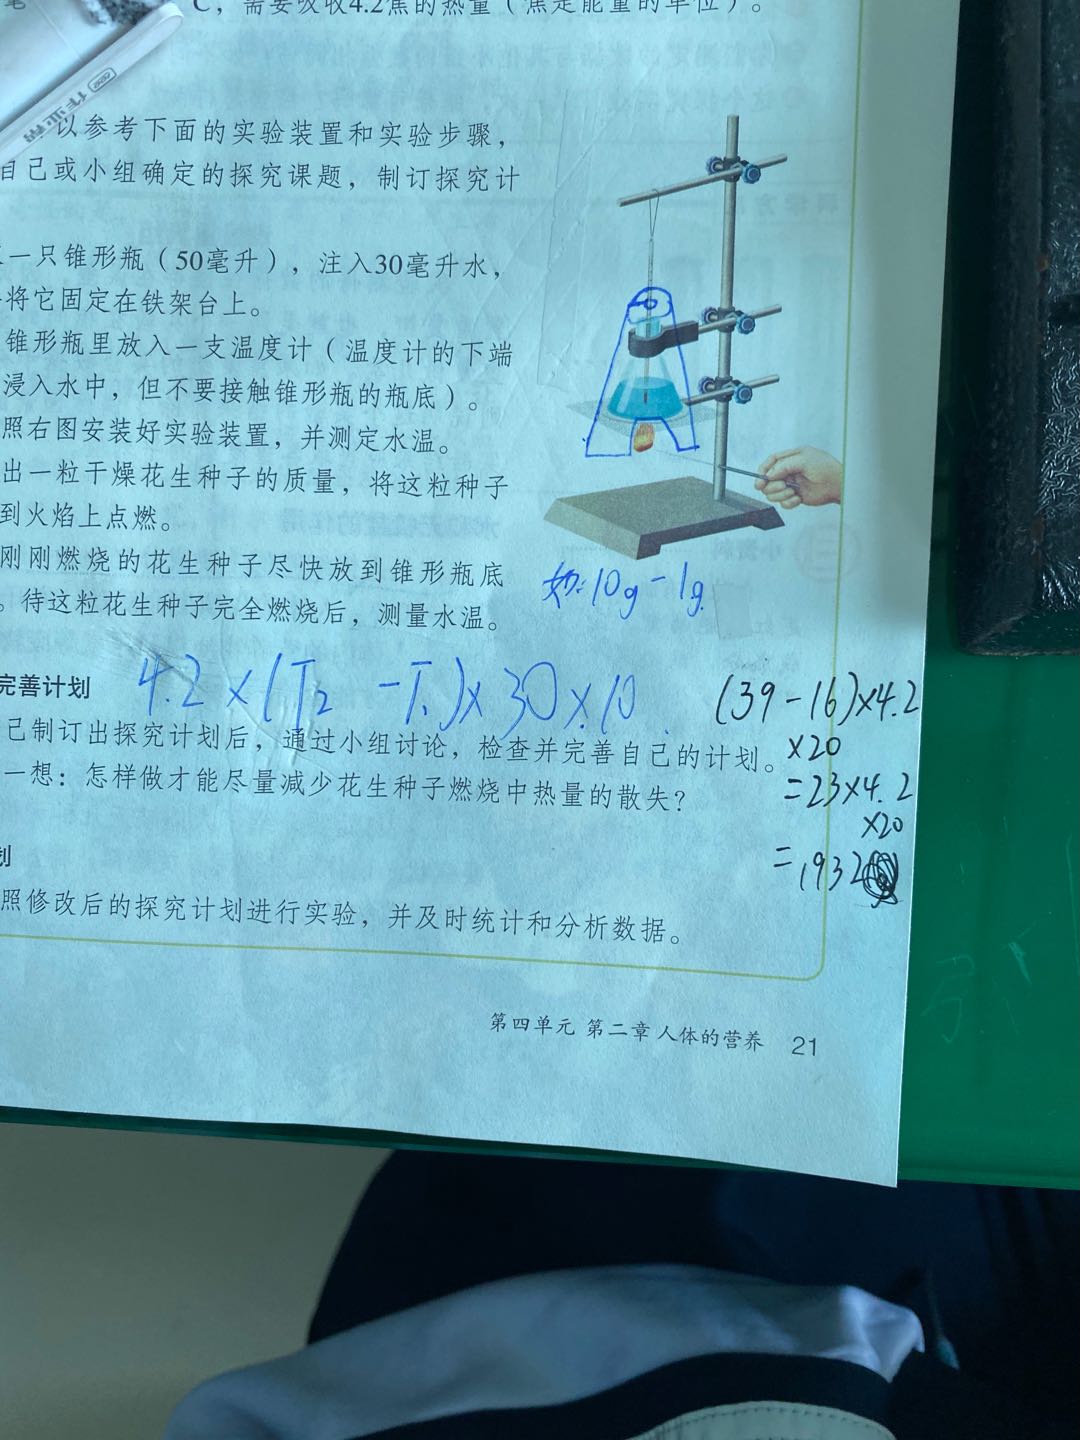 C，需要吸收4.2焦的热量（焦是能量的单位）。
作业帮
以参考下面的实验装置和实验步骤，
自己或小组确定的探究课题，制订探究计
一只锥形瓶（50毫升），注入30毫升水，
将它固定在铁架台上。
锥形瓶里放入一支温度计（温度计的下端
浸入水中，但不要接触锥形瓶的瓶底）。
照右图安装好实验装置，并测定水温。
出一粒干燥花生种子的质量，将这粒种子
到火焰上点燃。
刚刚燃烧的花生种子尽快放到锥形瓶底
。待这粒花生种子完全燃烧后，测量水温。
如:10g-1g.
4.2×(T₂-T₁)×30×10
完善计划
己制订出探究计划后，通过小组讨论，检查并完善自己的计划。
一想：怎样做才能尽量减少花生种子燃烧中热量的散失？
(39-16)×4.2
×20
=23×4.2
×20
=1932
划
照修改后的探究计划进行实验，并及时统计和分析数据。
第四单元 第二章 人体的营养 21